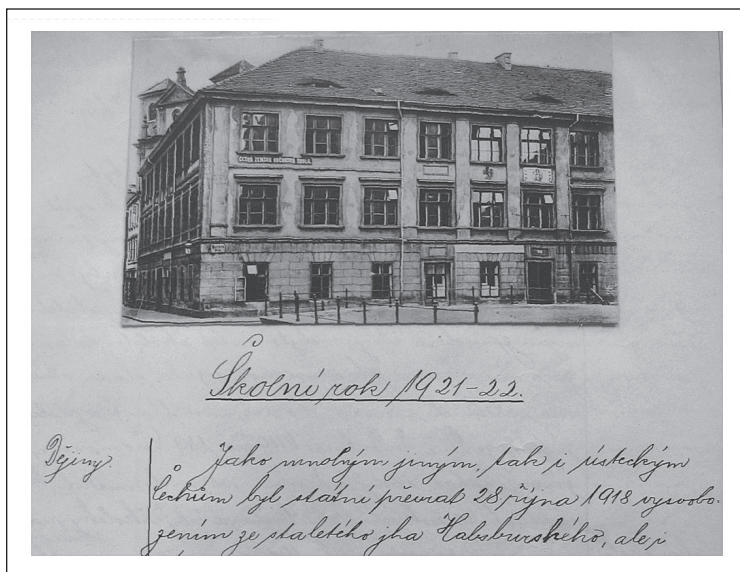 ČESKÁ ZEMSKÁ OBČANSKÁ ŠKOLA.
Školní rok 1921-22.
Dějiny.
Jako mnohým jiným, tak i ústeckým
Čechům byl státní převrat 28. října 1918 vysvobo-
zením ze staletého jha Habsburského, ale i